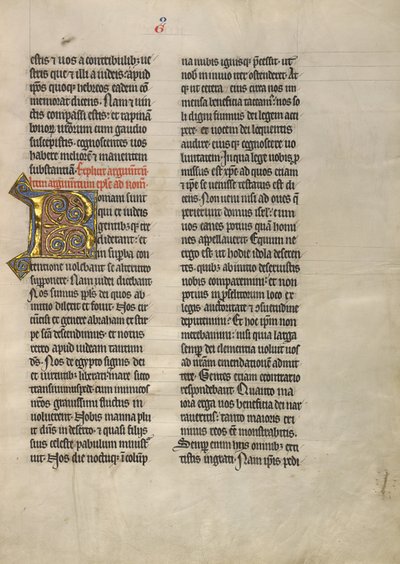 estis & uos a contribulib; ue
stris que & illi a iudeis. apud
ip̄os quoq; hebreos eadem cō
memorat dicens. Nam & uin
ctis compassi estis: & rapinā
bonoꝝ uestrorum cum gaudio
suscepistis. cognoscentes uos
habere meliorē & manentem
substantiam. Explicit argumentū
Itē argumentum epl̄e ad romanos.
Romani sunt
qui ex iudeis
gentib; q; cre
diderant: et
ex supba con
tentione uolebant se alterutro
supponere. Nam iudei dicebant
Nos sumus ppl̄s dei quos ab
initio dilexit & fouit. Nos cir
cūcisi ex genere abraham ex stir
pe scā descendimus. & notus
retro apud iudeam tantum
ds̄. Nos de egypto signis dei
et uirtutib; liberati. mare sicco
transiuimus pede. cum inimicos
nr̄os grauissimi fluctus in
uoluerent. Nobis manna plu
it dn̄s in deserto. & quasi filiis
suis celeste pabulum ministra
uit. Nos die noctuq; ī colūpna
na nubis ignisq; p̄cessit. ut
nob̄ in inuio iter ostenderet. At
q; ut cetera eius circa nos im
mensa beneficia taceam: nos so
li digni fuimus dei legem accip
pere. et uocem dei loquentis
audire. eiusq; cognoscere uo
luntatem. In qua lege nobis p̄
missus est xp̄c. ad quos etiam
& ip̄e se uenisse testatus est di
cens. Non ueni nisi ad oues q̄
perierunt domus isrl̄: cum
uos canes potius quā homi
nes appellauerit. Equum ne
ergo est ut hodie idola deseren
tes. quib; ab initio deseruistis
nobis comparemini: et non
potius in pselitorum loco ex
legis auctoritate & cōsuetudine
deputemini. Et hoc ip̄m non
merebamini: nisi quia larga
semp̄ dei clementia uoluit uos
ad nr̄am emendationē admit
tere. Gentes etiam econtrario
respondebant. Quanto ma
iora erga uos beneficia dei nar
raueritis: tanto maioris cri
minis reos ēē monstrabitis.
Semp̄ enim hiis omnib; exti
tistis ingrati. Nam ip̄is pedi